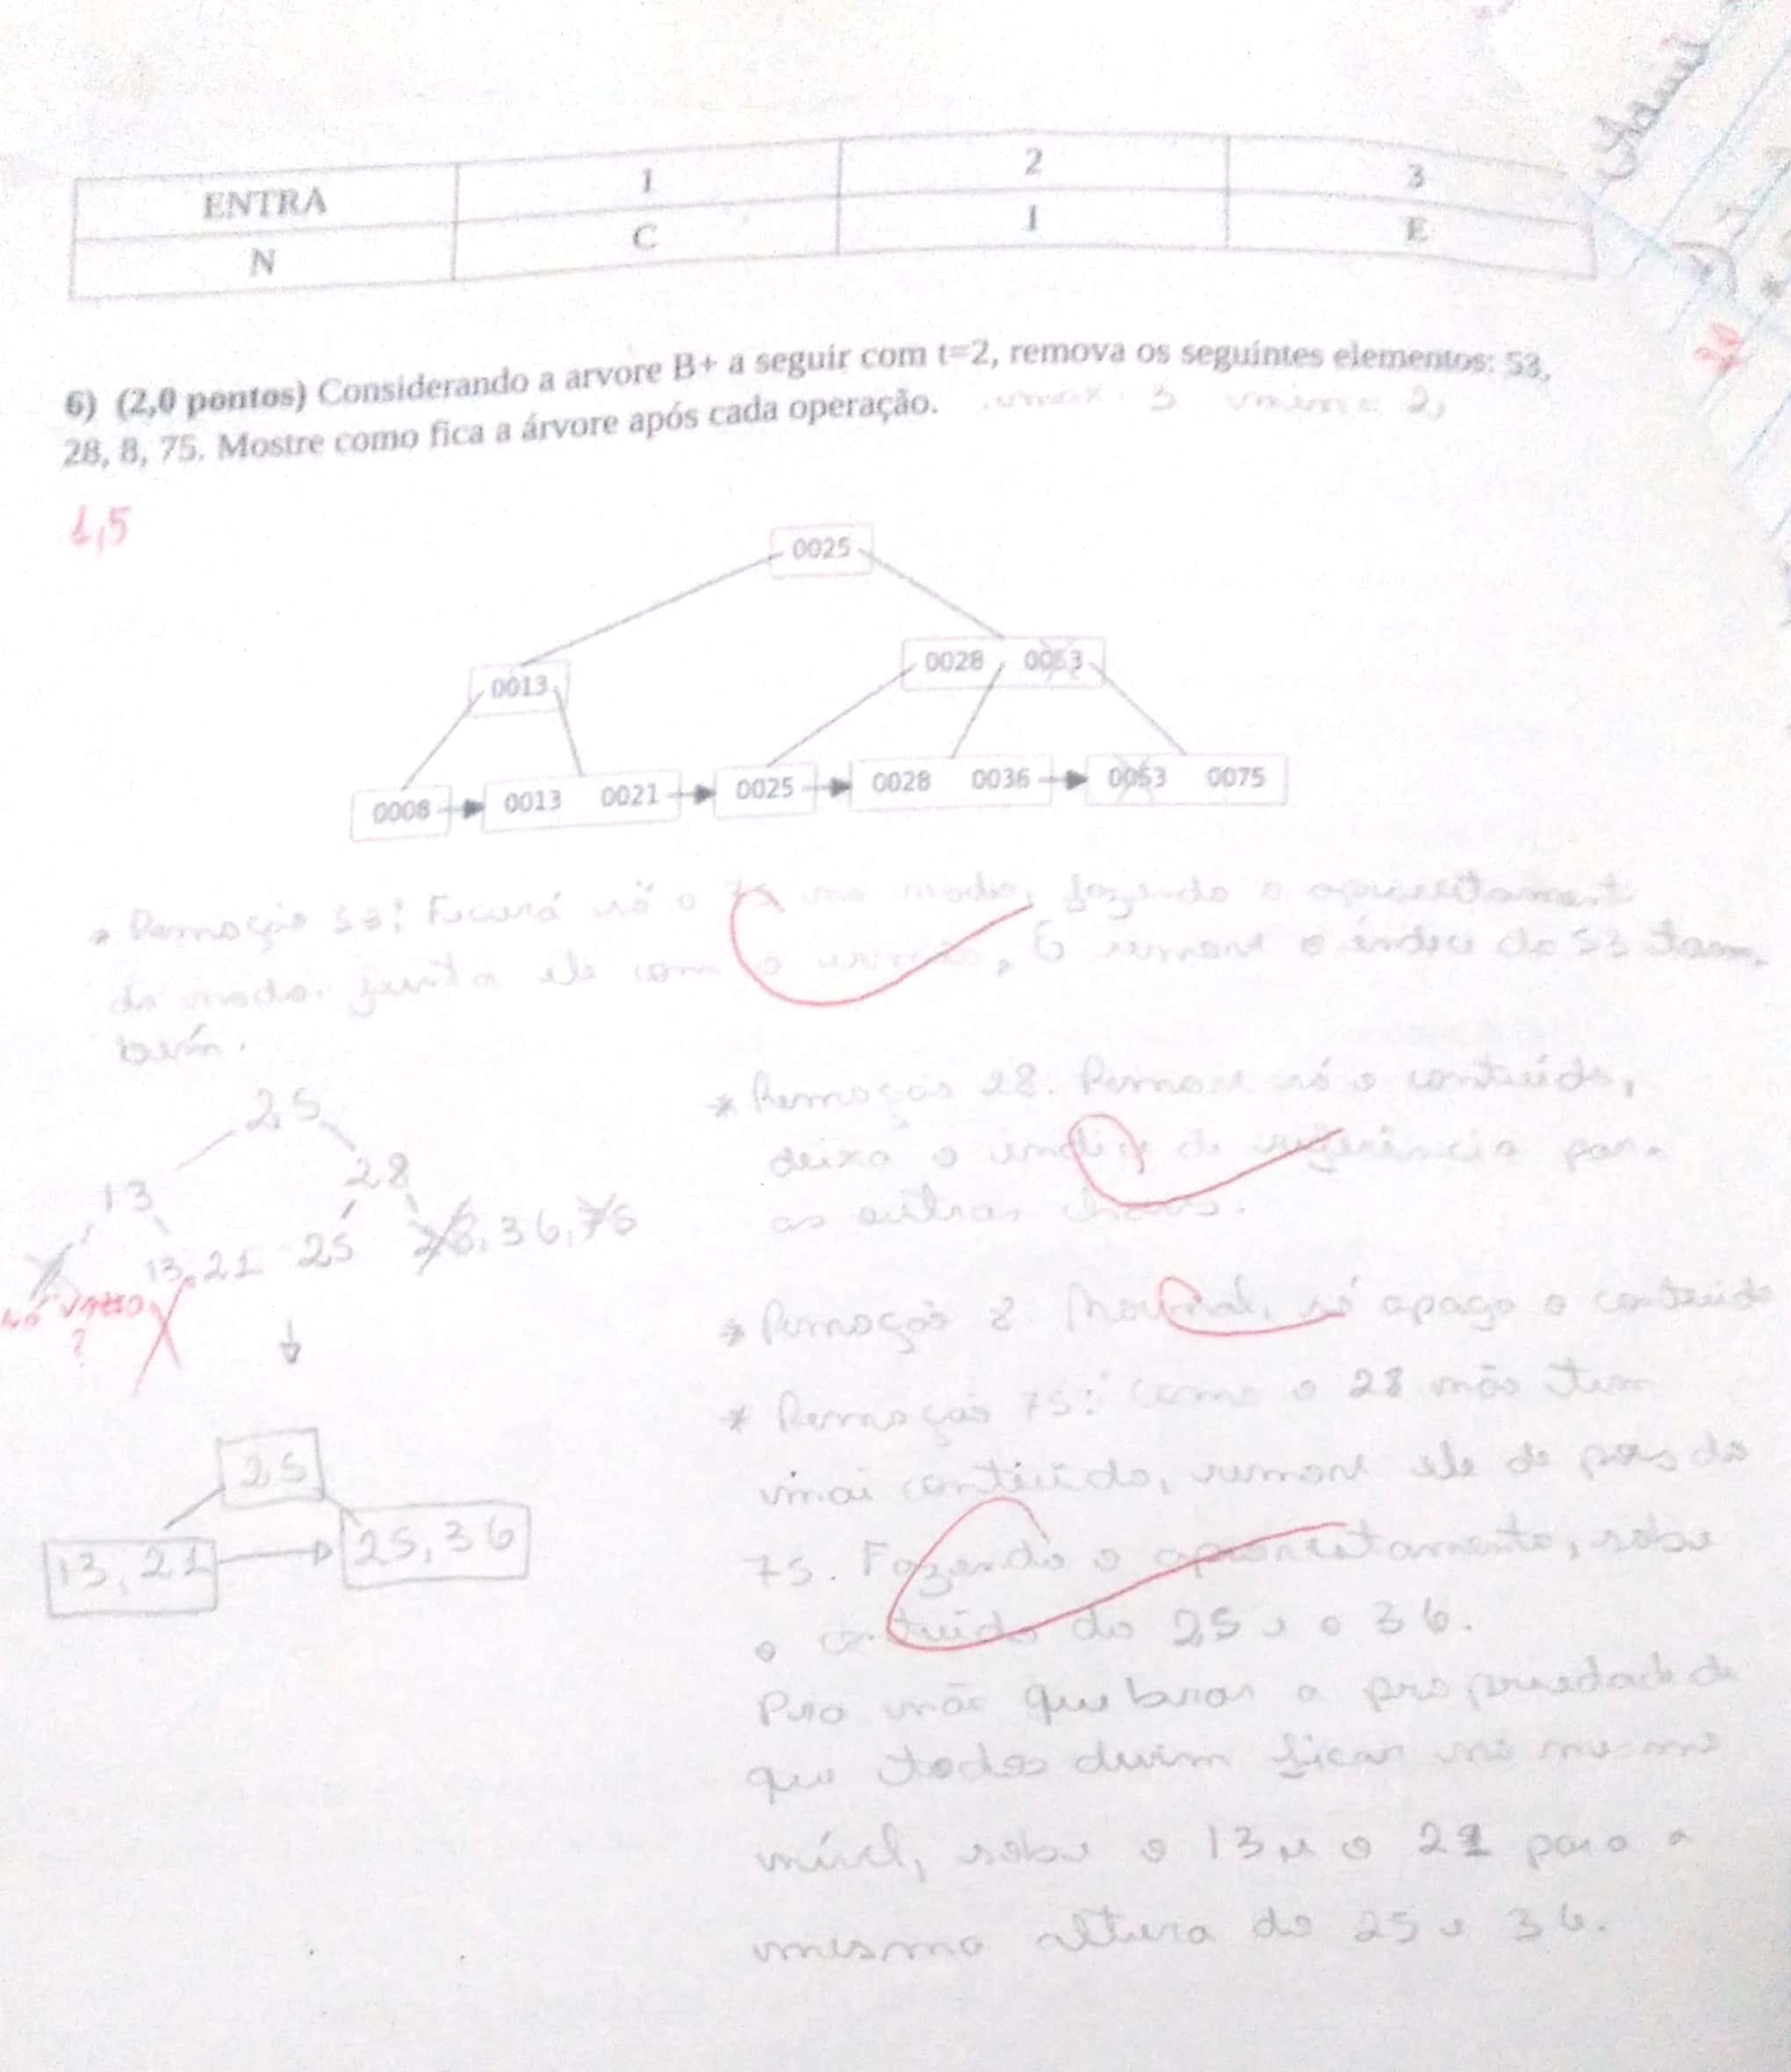 ENTRA 1 2 3
N C I E
6) (2,0 pontos) Considerando a arvore B+ a seguir com t=2, remova os seguintes elementos: 53,
28, 8, 75. Mostre como fica a árvore após cada operação. max 3 min = 2,
1,5
0025
0013 0028 0053
0008 0013 0021 0025 0028 0036 0053 0075
* Remoção 53: Ficará só o 75 no nodo, fazendo o aproveitament
do nodo. junta ele com o irmão, E remove o índice do 53 tam,
bém.
* Remoção 28. Remove só o conteúdo,
deixa o indice de referência para
as outras chaves.
25
13 28
13,21 25 28, 36, 75
nó vazio
?
* Remoção 8. Normal, só apaga o conteúdo
* Remoção 75: como o 28 não tem
mai conteúdo, remove ele de pois do
75. Fazendo o aproveitamento, sobe
o conteúdo do 25 e o 36.
Pra não quebrar a propriedade de
que todos devem ficar no mesmo
nível, sobe o 13 e o 21 para a
mesma altura do 25 e 36.
25
13, 21 25, 36